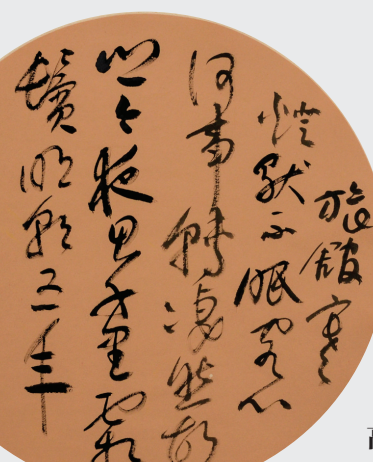 旅館寒
燈獨不眠客心
何事轉凄然故
鄉今夜思千里霜
鬢明朝又一年